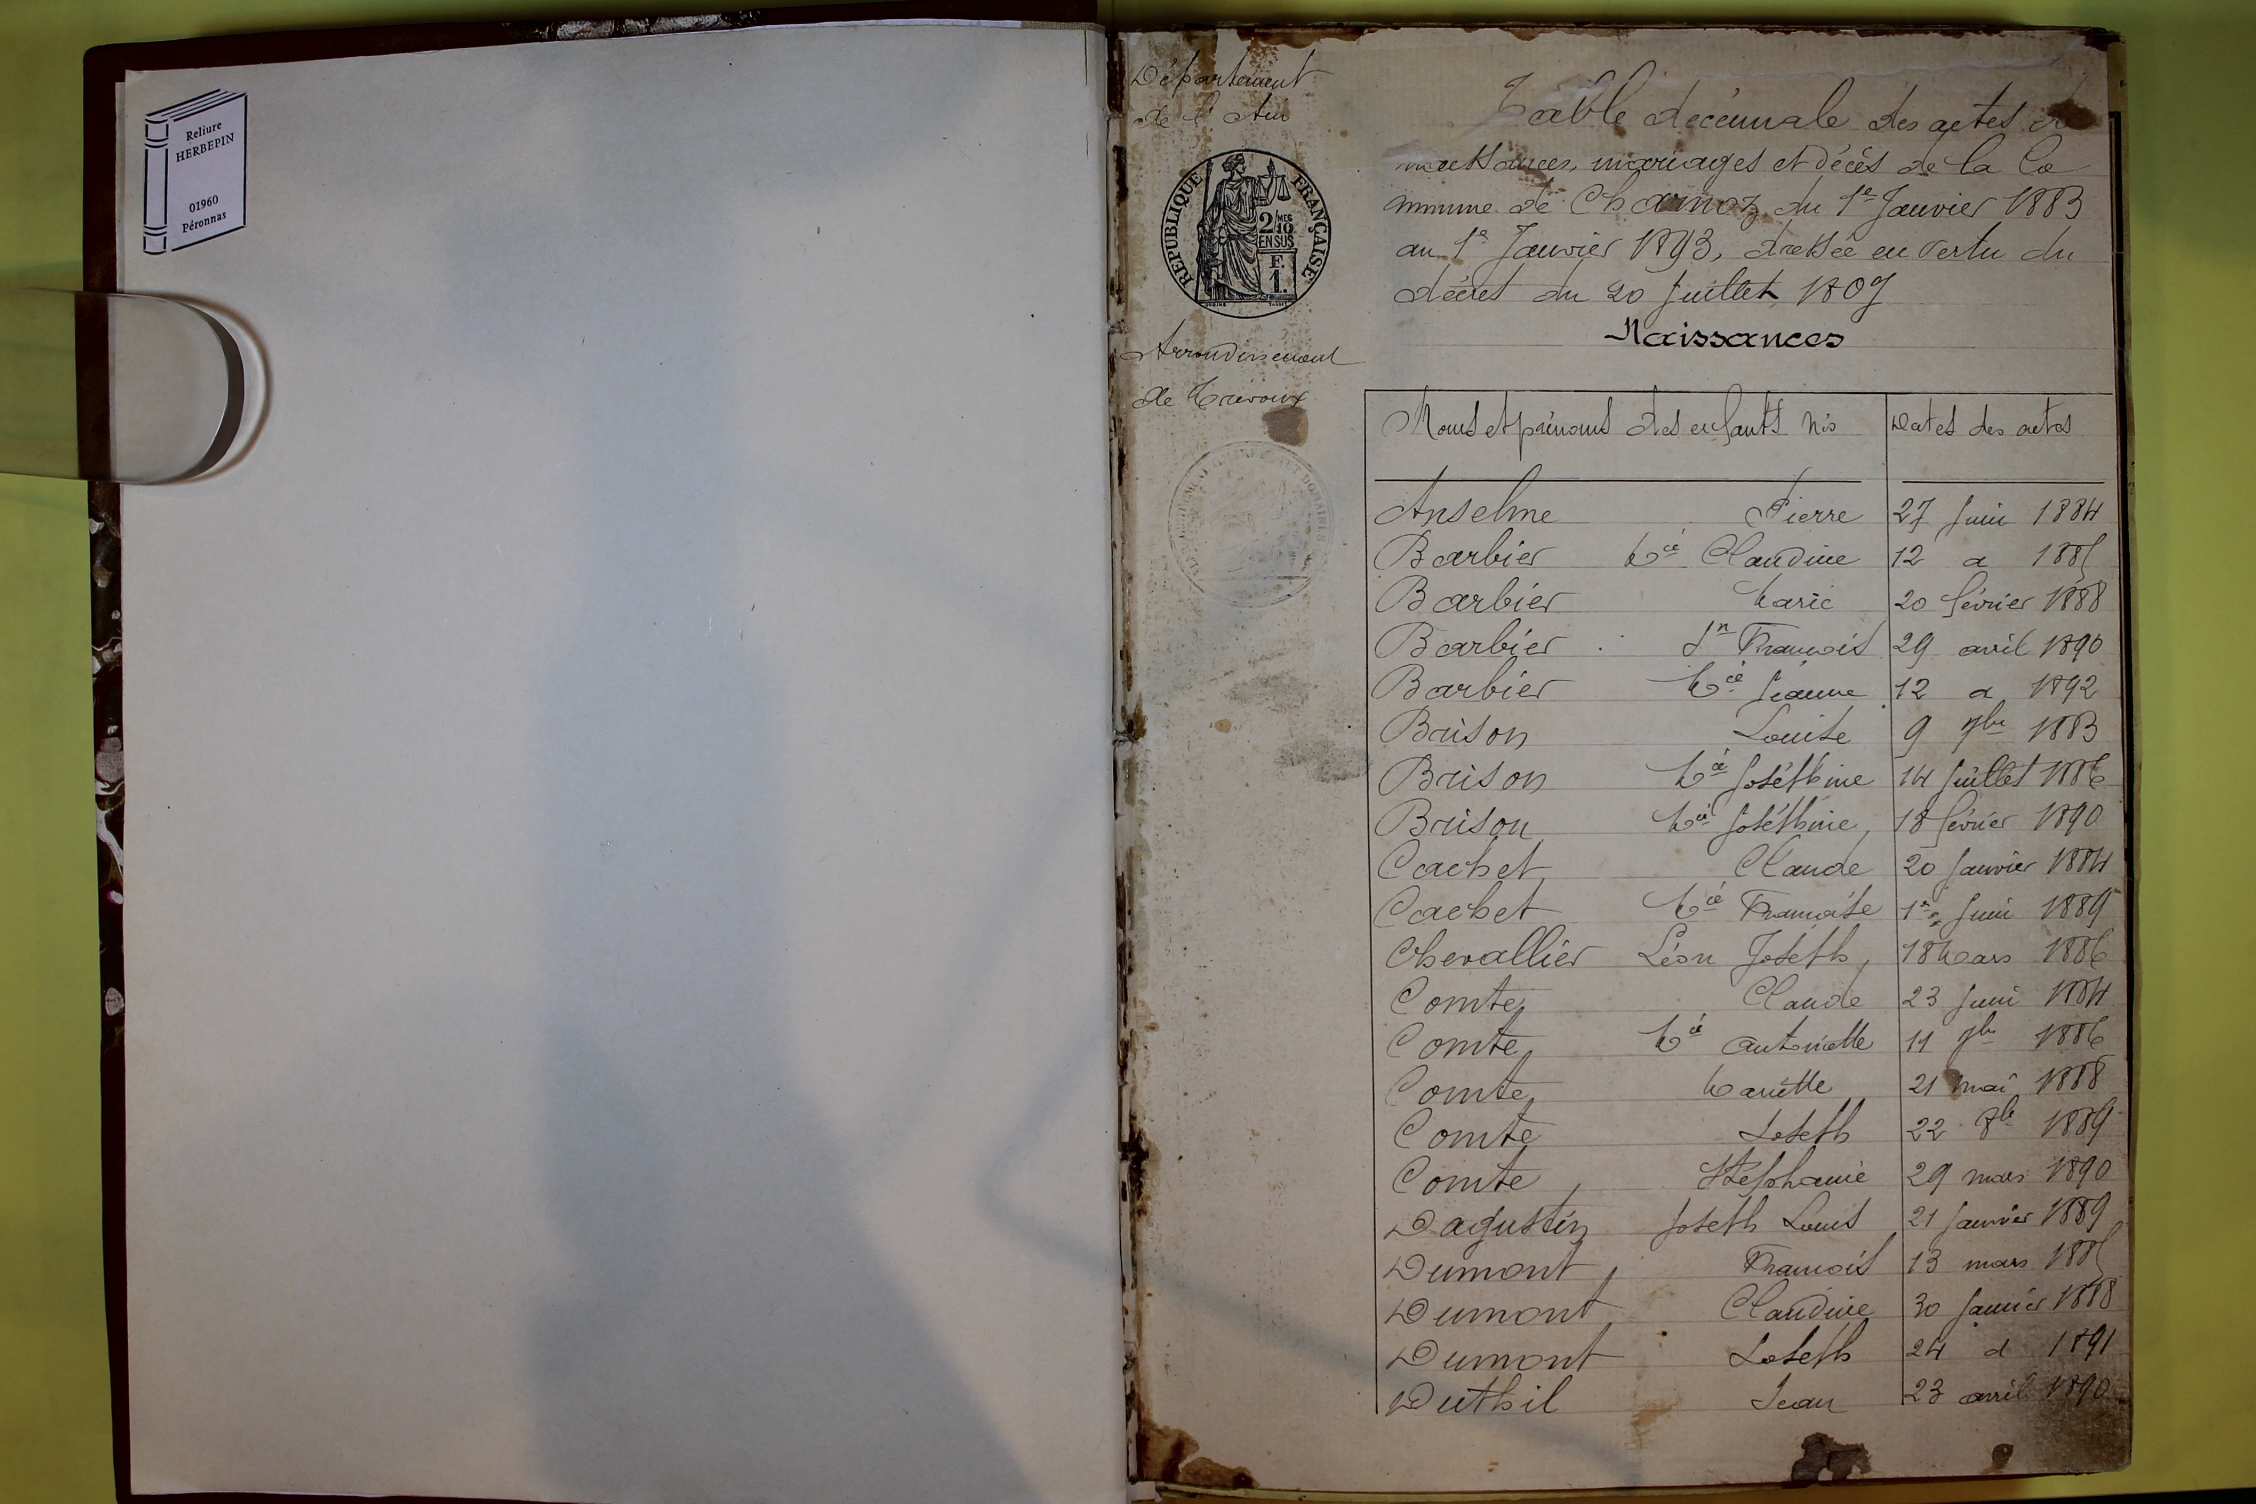 Reliure
HERBEPIN
01960
Péronnas
Département
de l'Ain
RÉPUBLIQUE FRANÇAISE
2/10 MES
EN SUS
F.
1.
Arrondissement
de Trévoux
Table décennale des actes de
naissances, mariages et décès de la Co
mmune de Charnoz du 1er Janvier 1883
au 1er Janvier 1893, dressée en vertu du
décret du 20 Juillet 1807
Naissances
Noms et prénoms des enfants nés Dates des actes
Anselme Pierre 27 Juin 1884
Barbier Mie Claudine 12 d 1885
Barbier Marie 20 février 1888
Barbier Jn François 29 avril 1890
Barbier Mie Jeanne 12 d 1892
Brison Louise 9 9bre 1883
Brison Mie Joséphine 14 Juillet 1886
Brison Mie Joséphine 18 février 1890
Cachet Claude 20 Janvier 1884
Cachet Mie Françoise 1er Juin 1889
Chevallier Léon Joseph 18 Mars 1886
Comte Claude 23 Juin 1884
Comte Mie Antoinette 11 9bre 1886
Comte Mariette 21 mai 1888
Comte Joseph 22 8bre 1889
Comte Stéphanie 29 mars 1890
Dagustin Joseph Louis 21 Janvier 1889
Dumont François 13 mars 1885
Dumont Claudine 30 Janvier 1888
Dumont Joseph 24 d 1891
Duthil Jean 23 avril 1890